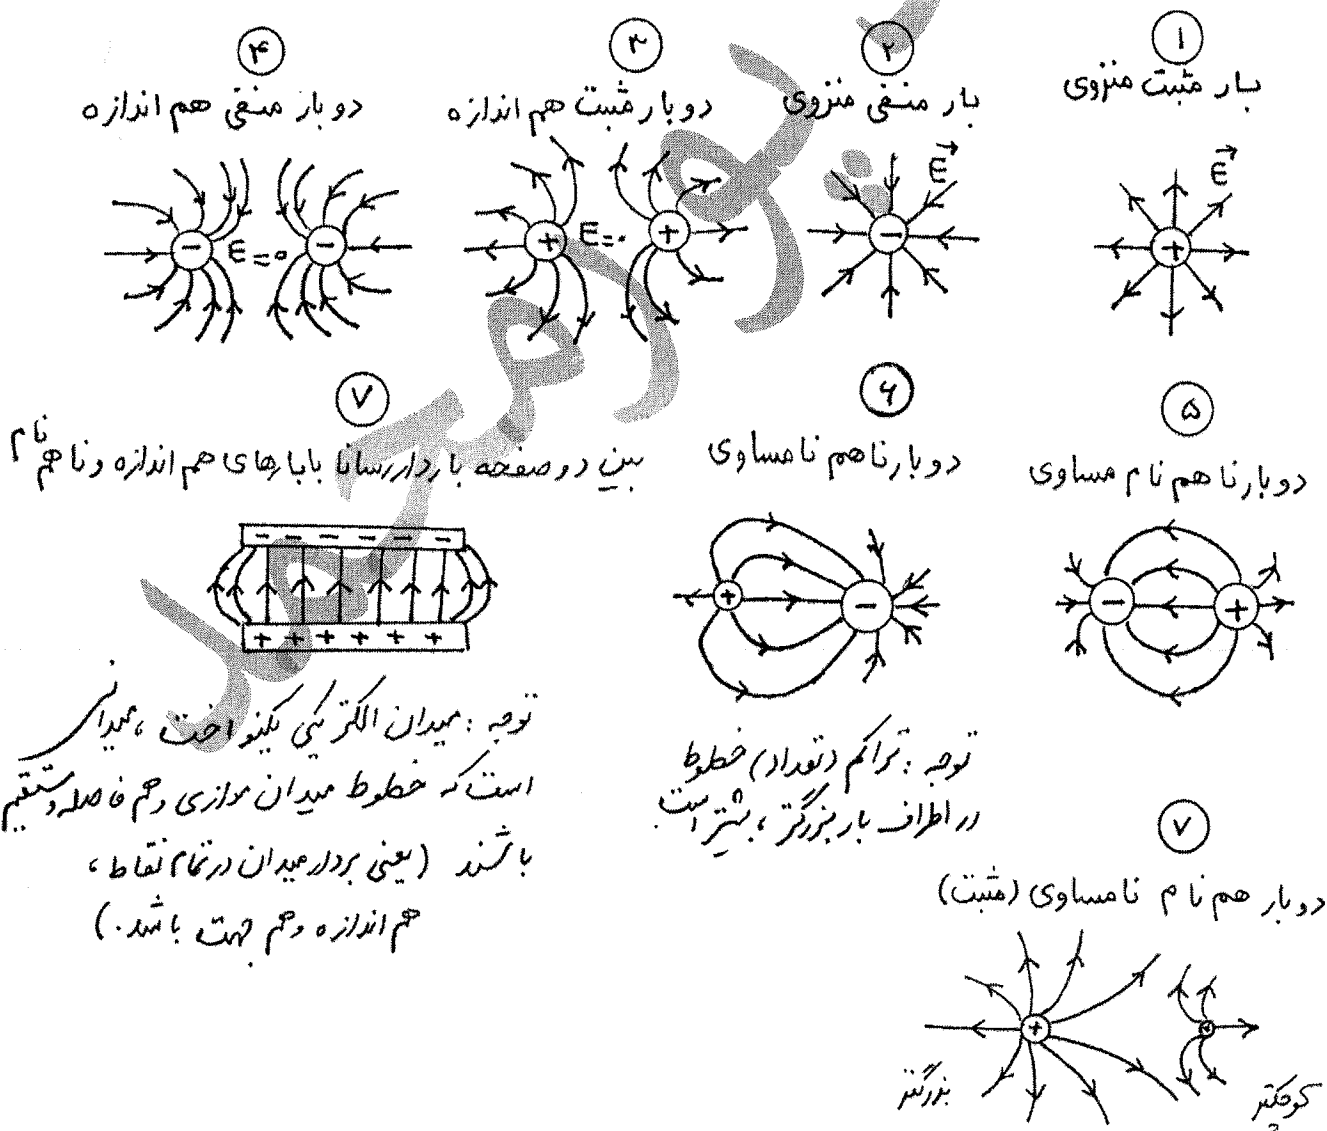 ۱
بار مثبت منزوی
E
+
۲
بار منفی منزوی
E
−
۳
دو بار مثبت هم اندازه
+ E=۰ +
۴
دو بار منفی هم اندازه
− E=۰ −
۵
دو بار نا هم نام مساوی
− +
۶
دو بار نا هم نامساوی
+ −
توجه : تراکم (تعداد) خطوط
در اطراف بار بزرگتر ، بیشتر است.
۷
بین دو صفحه باردار رسانا با بارهای هم اندازه و نا هم نام
− − − − − −
+ + + + + +
توجه : میدان الکتریکی یکنواخت ، میدانی
است که خطوط میدان موازی و هم فاصله و مستقیم
باشند (یعنی بردار میدان در تمام نقاط ،
هم اندازه و هم جهت باشد.)
۷
دو بار هم نام نامساوی (مثبت)
+ +
بزرگتر
کوچکتر